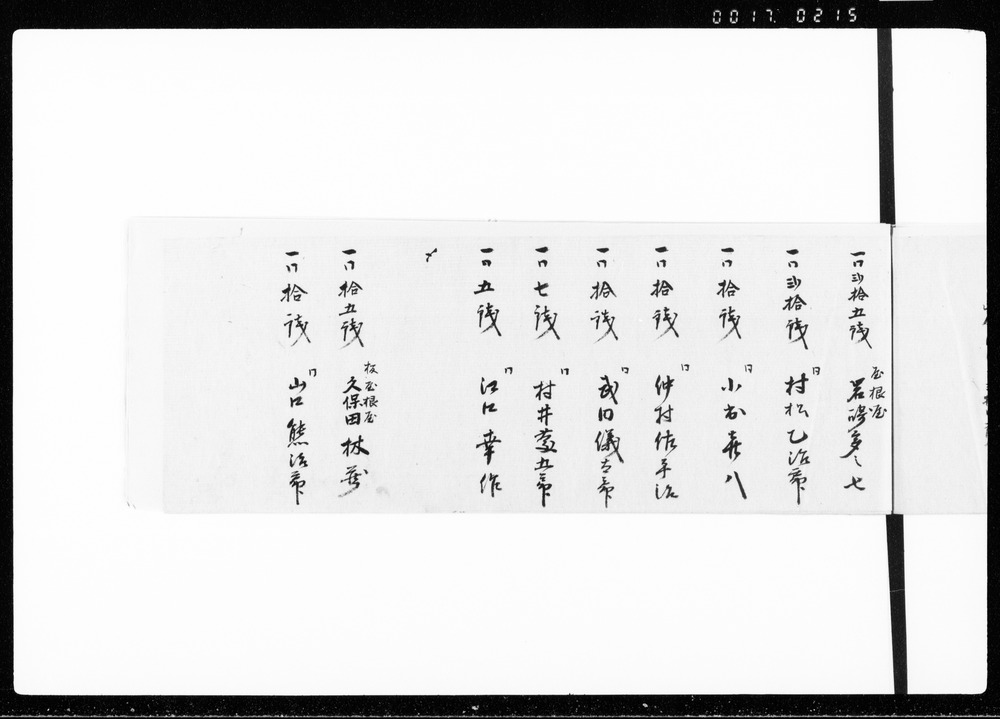 0017 0215
一同弐拾五銭 屋根屋 岩崎多々七
一同弐拾銭 同 村松乙治郎
一同拾銭 同 小出喜八
一同拾銭 同 仲村佐平治
一同拾銭 同 武田儀太郎
一同七銭 同 村井慶五郎
一同五銭 同 江口幸作
〆
一同拾五銭 板屋根屋 久保田林蔵
一同拾銭 同 山口熊治郎